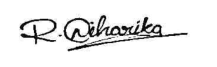 R. Niharika